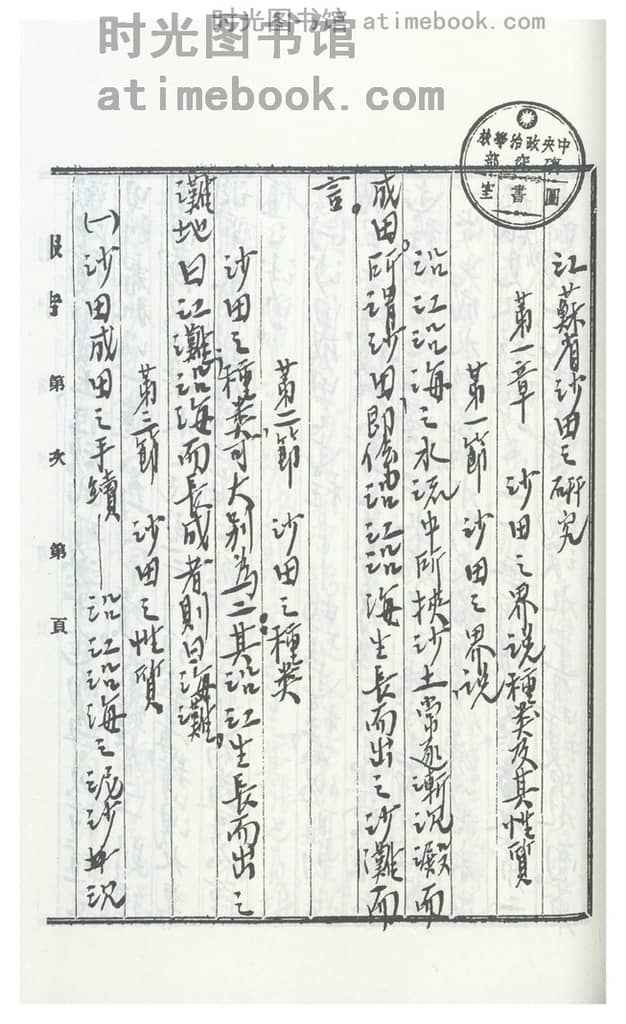 时光图书馆 atimebook.com
时光图书馆
atimebook.com
中央政治學校
研究部
圖書室
江蘇省沙田之研究
第一章　沙田之界说種类及其性質
第一節　沙田之界说
沿江沿海之水流中所挾沙土常逐漸沉澱而
成田。所謂沙田，即係沿江沿海生長而出之沙灘而
言。
第二節　沙田之種类
沙田之種类，可大别為二：其沿江生長而出之
灘地曰江灘；沿海而長成者則曰海灘。
第三節　沙田之性質
(一)沙田成田之手續——沿江沿海之泥沙沉
字第　次　第　頁